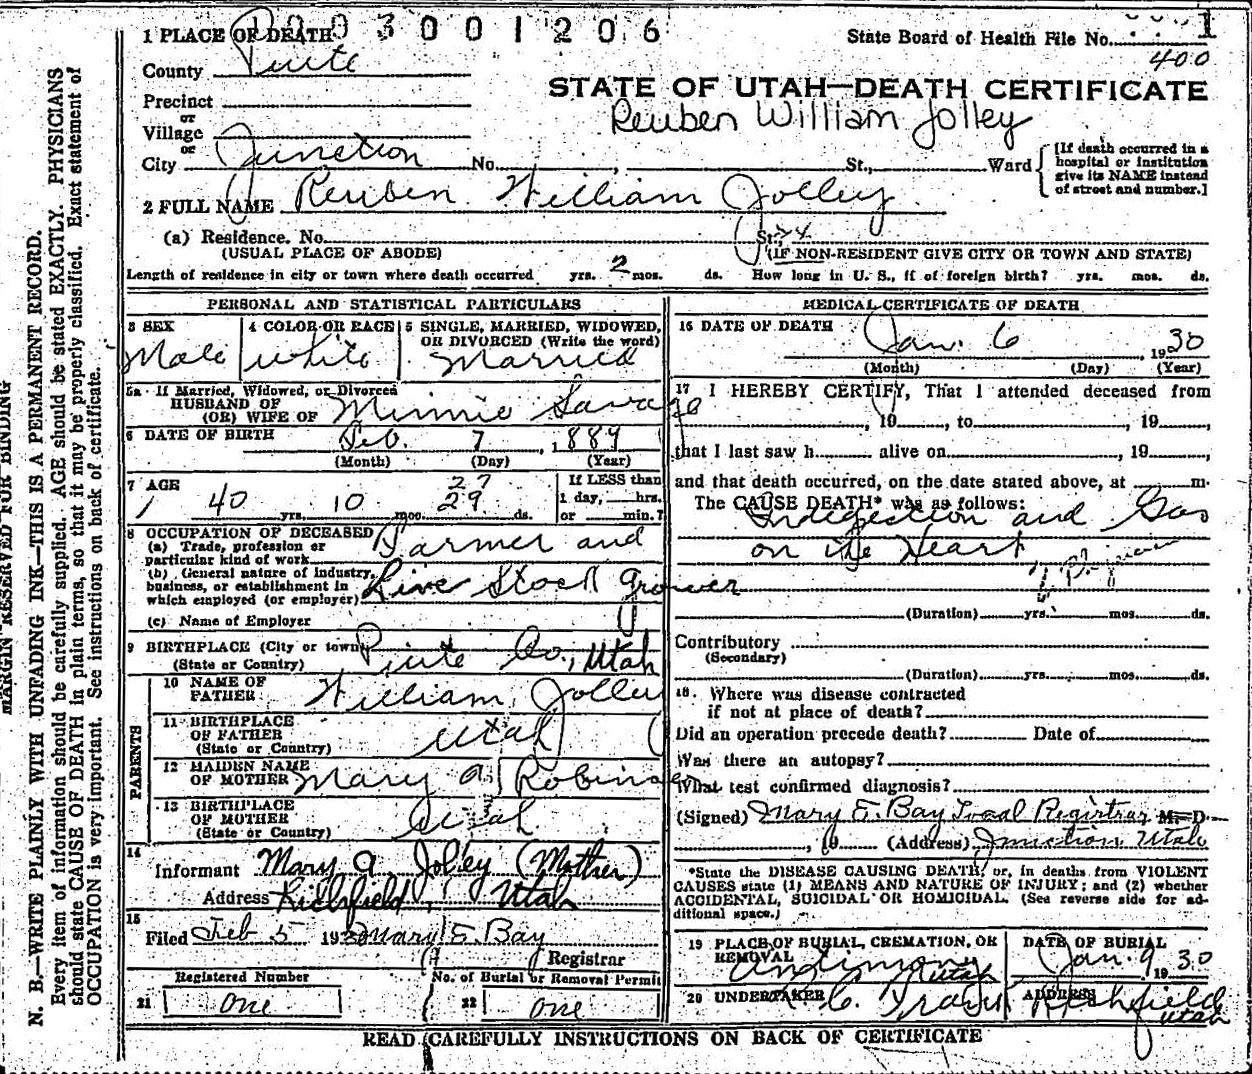 003001206
1 PLACE OF DEATH
State Board of Health File No. 1
400
County Piute
STATE OF UTAH—DEATH CERTIFICATE
Precinct
Reuben William Jolley
or
Village
or
City Junction No. St., Ward
[If death occurred in a hospital or institution give its NAME instead of street and number.]
2 FULL NAME Reuben William Jolley
(a) Residence. No. St.
(USUAL PLACE OF ABODE) (IF NON-RESIDENT GIVE CITY OR TOWN AND STATE)
Length of residence in city or town where death occurred yrs. 2 mos. ds. How long in U. S., if of foreign birth? yrs. mos. ds.
PERSONAL AND STATISTICAL PARTICULARS
3 SEX 4 COLOR OR RACE 5 SINGLE, MARRIED, WIDOWED,
OR DIVORCED (Write the word)
Male white Married
5a If Married, Widowed, or Divorced
HUSBAND OF
(OR) WIFE OF Minnie Savage
6 DATE OF BIRTH Feb. 7, 1889
(Month) (Day) (Year)
7 AGE 27 If LESS than
40 yrs. 10 mos. 29 ds. 1 day, hrs.
or min.?
8 OCCUPATION OF DECEASED
(a) Trade, profession or
particular kind of work Farmer and
(b) General nature of industry,
business, or establishment in
which employed (or employer) Live Stock grower
(c) Name of Employer
9 BIRTHPLACE (City or town)
(State or Country) Piute Co., Utah
PARENTS
10 NAME OF
FATHER William Jolley
11 BIRTHPLACE
OF FATHER
(State or Country) Utah
12 MAIDEN NAME
OF MOTHER Mary A Robinson
13 BIRTHPLACE
OF MOTHER
(State or Country) Utah
14
Informant Mary A. Jolley (Mother)
Address Richfield, Utah
15
Filed Feb 5 1930 Mary E. Bay
Registrar
Registered Number No. of Burial or Removal Permit
21 one 22 one
MEDICAL CERTIFICATE OF DEATH
16 DATE OF DEATH Jan. 6, 1930
(Month) (Day) (Year)
17 I HEREBY CERTIFY, That I attended deceased from
, 19, to, 19,
that I last saw h alive on, 19,
and that death occurred, on the date stated above, at m.
The CAUSE DEATH* was as follows:
Indigestion and Gas
on the Heart
(Duration) yrs. mos. ds.
Contributory
(Secondary)
(Duration) yrs. mos. ds.
18. Where was disease contracted
if not at place of death?
Did an operation precede death? Date of
Was there an autopsy?
What test confirmed diagnosis?
(Signed) Mary E. Bay Local Registrar M. D.
, 19 (Address) Junction Utah
*State the DISEASE CAUSING DEATH, or, in deaths from VIOLENT
CAUSES state (1) MEANS AND NATURE OF INJURY; and (2) whether
ACCIDENTAL, SUICIDAL OR HOMICIDAL. (See reverse side for ad-
ditional space.)
19 PLACE OF BURIAL, CREMATION, OR DATE OF BURIAL
REMOVAL
Antimony Utah Jan. 9 1930
20 UNDERTAKER ADDRESS
Richfield
Utah
READ CAREFULLY INSTRUCTIONS ON BACK OF CERTIFICATE
MARGIN RESERVED FOR BINDING
N. B.—WRITE PLAINLY WITH UNFADING INK—THIS IS A PERMANENT RECORD.
Every item of information should be carefully supplied. AGE should be stated EXACTLY. PHYSICIANS
should state CAUSE OF DEATH in plain terms, so that it may be properly classified. Exact statement of
OCCUPATION is very important. See instructions on back of certificate.